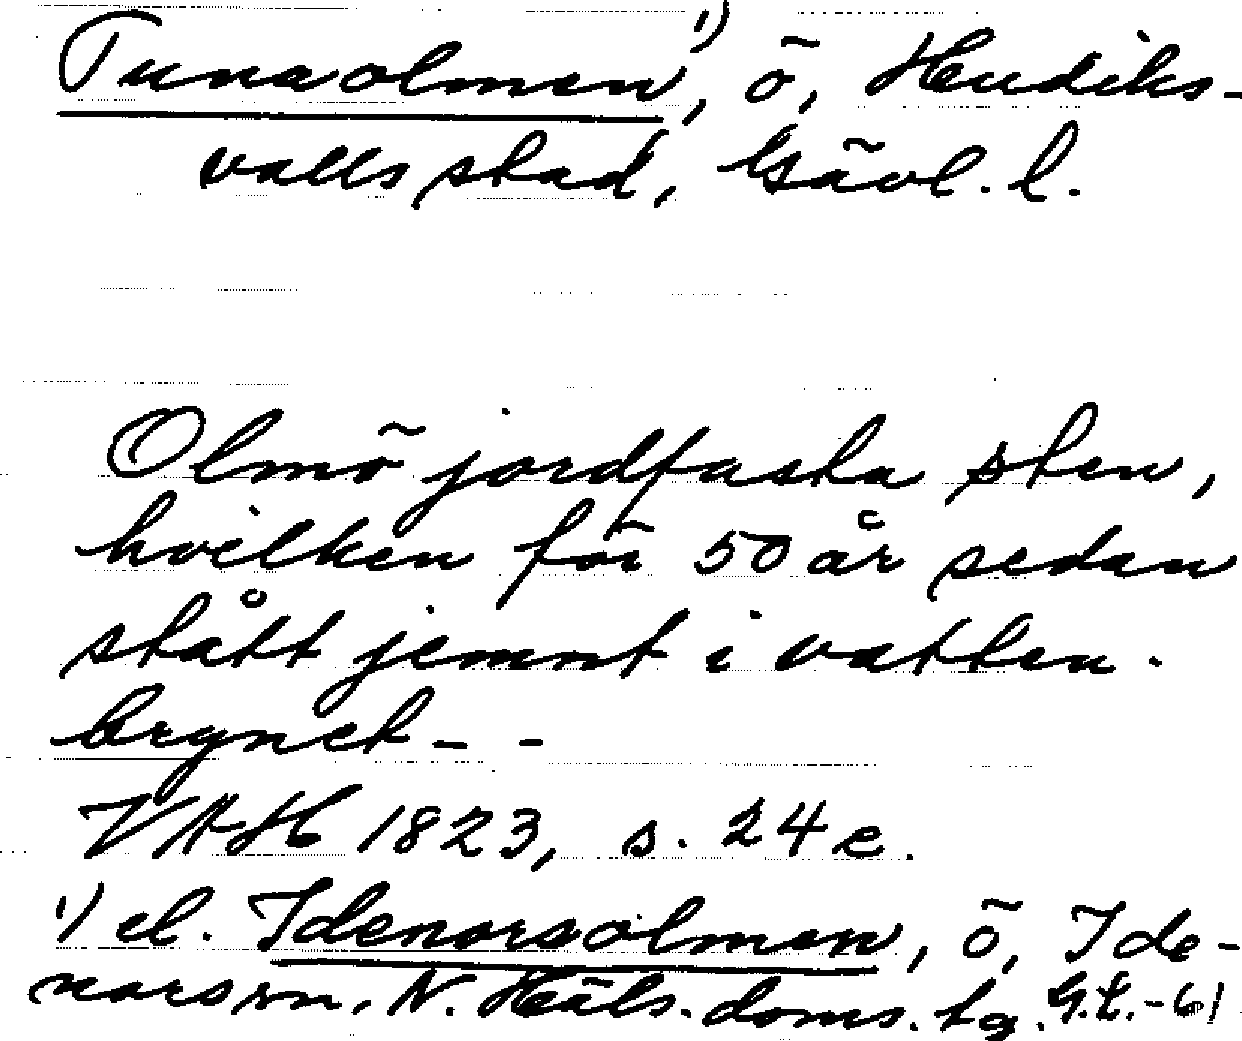 Tunaolmen¹⁾, ö, Hudiks-
valls stad, Gävl. l.
Olmö jordfasta sten,
hvilken för 50 år sedan
stått jemnt i vatten-
brynet - -
VAH 1823, s. 24 e.
¹⁾ el. Idenorsolmen, ö, Ide-
nors sn, N. Häls. doms. tg. G.E. -61